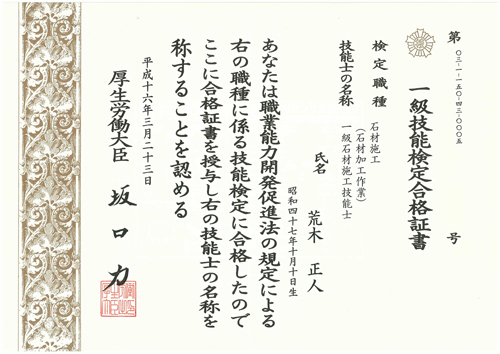 第 〇三-一-一五〇-四三-〇〇〇五 号
一級技能検定合格証書
検定職種 石材施工
(石材加工作業)
技能士の名称 一級石材施工技能士
氏名 荒木 正人
昭和四十七年十月十日生
あなたは職業能力開発促進法の規定による
右の職種に係る技能検定に合格したので
ここに合格証書を授与し右の技能士の名称を
称することを認める
平成十六年三月二十三日
厚生労働大臣 坂口 力